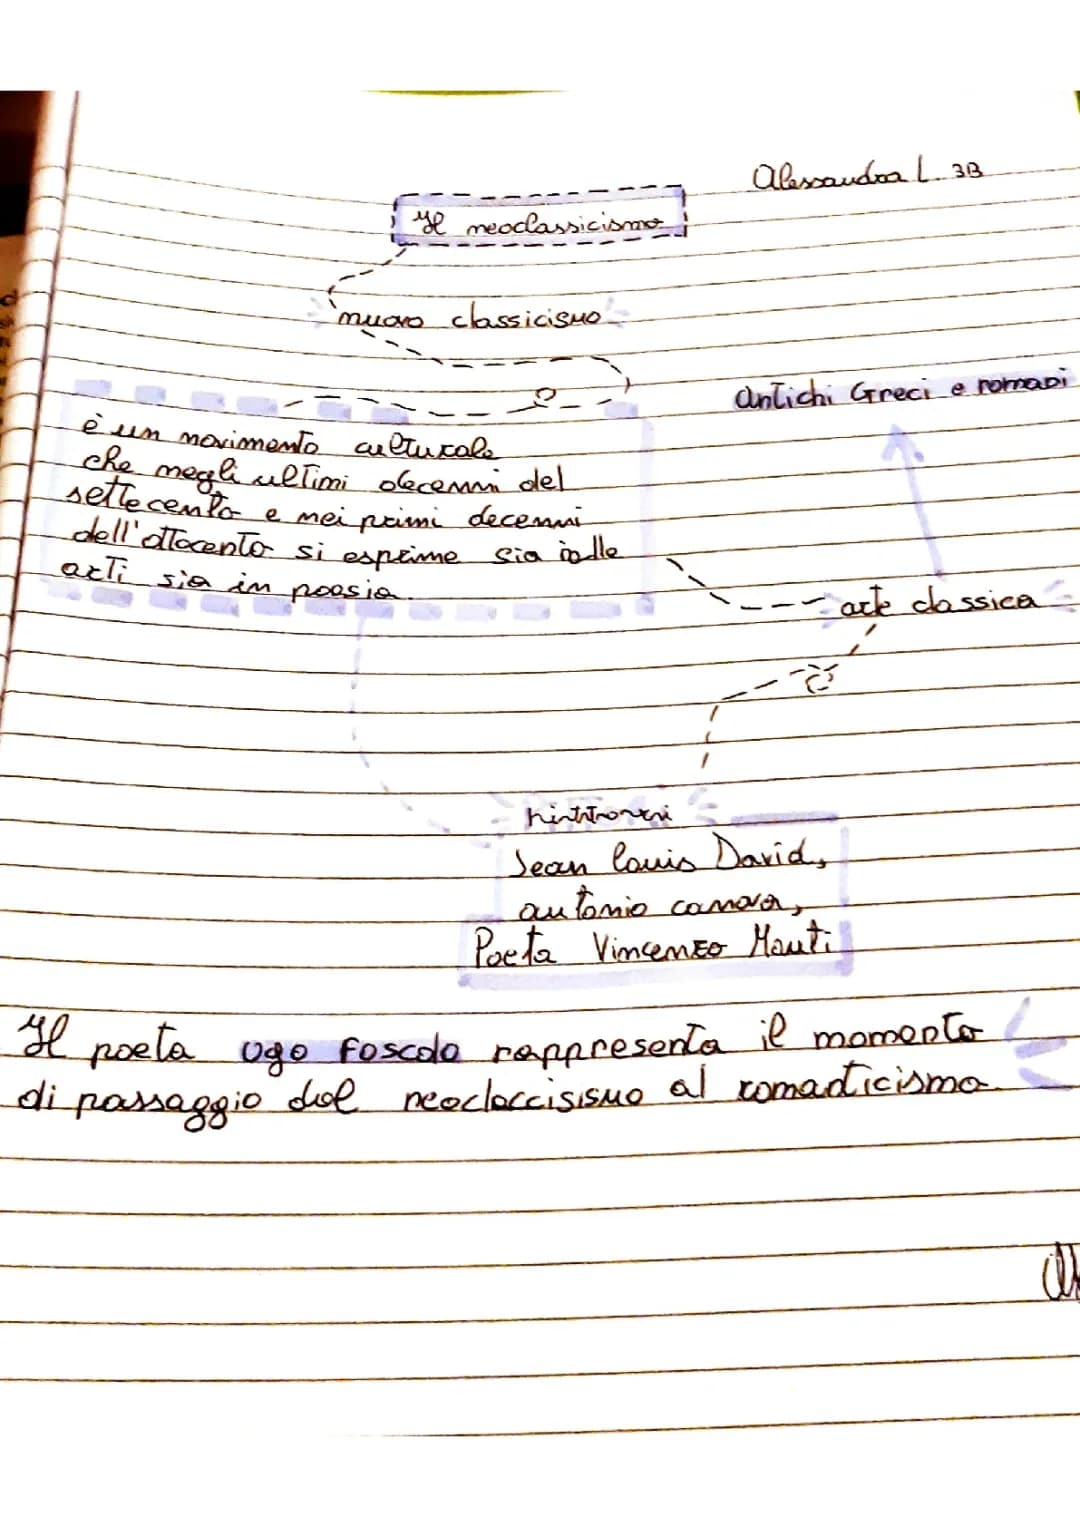 Alessandra L. 3B
Il neoclassicismo
nuovo classicismo
antichi Greci e romani
è un movimento culturale
che negli ultimi decenni del
settecento e nei primi decenni
dell'ottocento si esprime sia nelle
arti sia in poesia.
arte classica
Jean louis David,
antonio canova,
Poeta Vincenzo Monti
Il poeta Ugo foscolo rappresenta il momento
di passaggio dal neoclaccisismo al romanticismo.